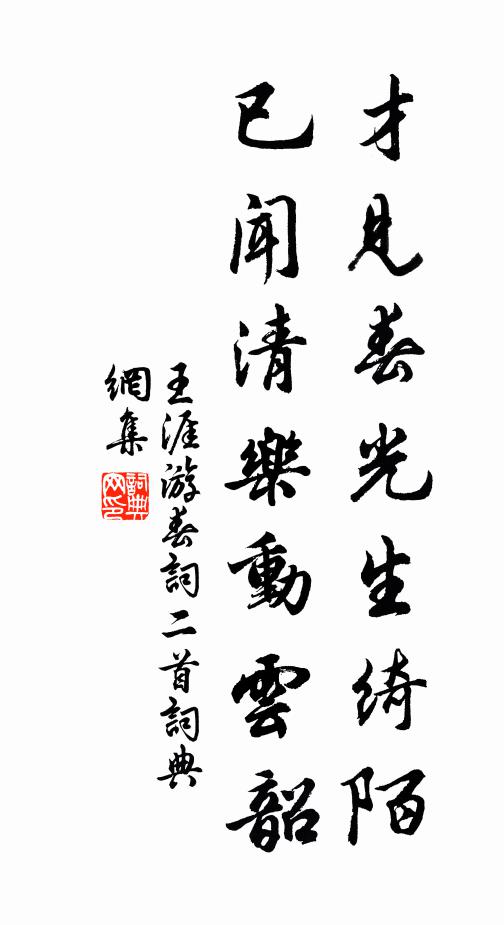 才見春光生綺陌
已聞清樂動雲韶
王涯游春詞二首詞典
網集
詞典
网印